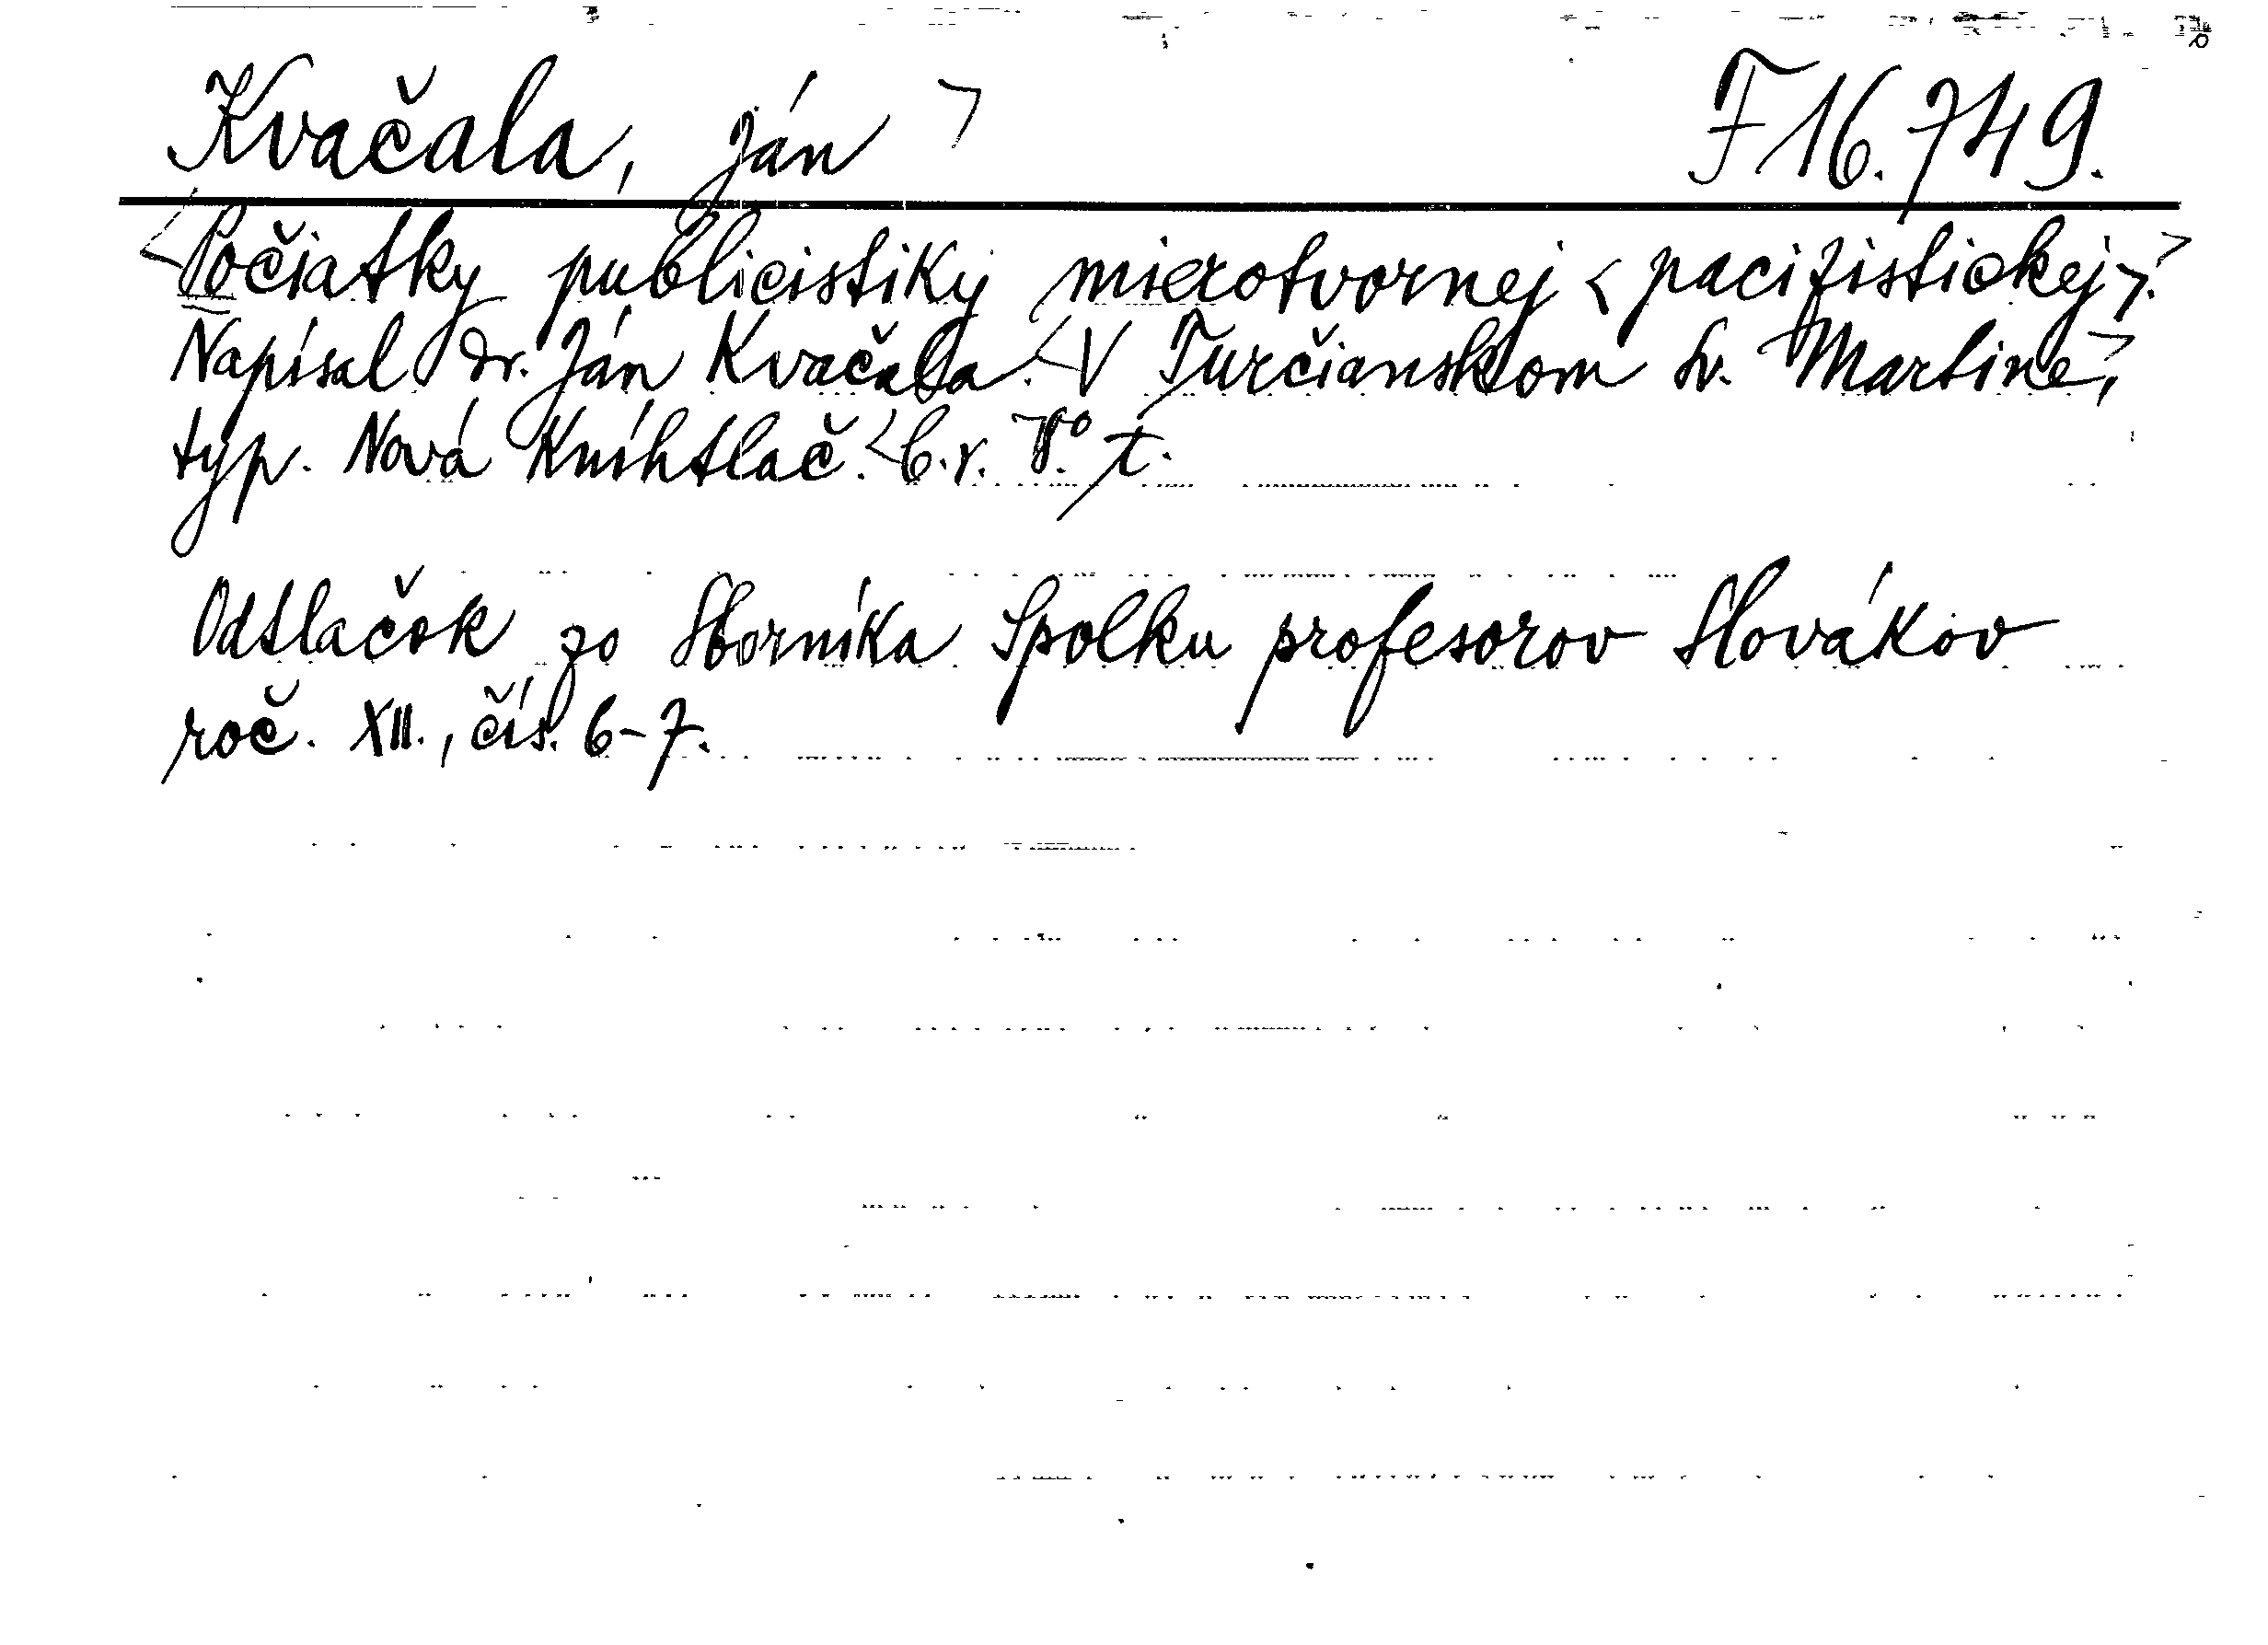 Kvačala, Ján > F 16.749.
<Počiatky publicistiky mierotvornej <pacifistickej>.>
Napísal Dr. Ján Kvačala. <V Turčianskom Sv. Martine,>
typ. Nová Kníhtlač. <b.r.> 8.° t.
Odtlačok zo Sborníka Spolku profesorov Slovákov
roč. XII., čís. 6-7.